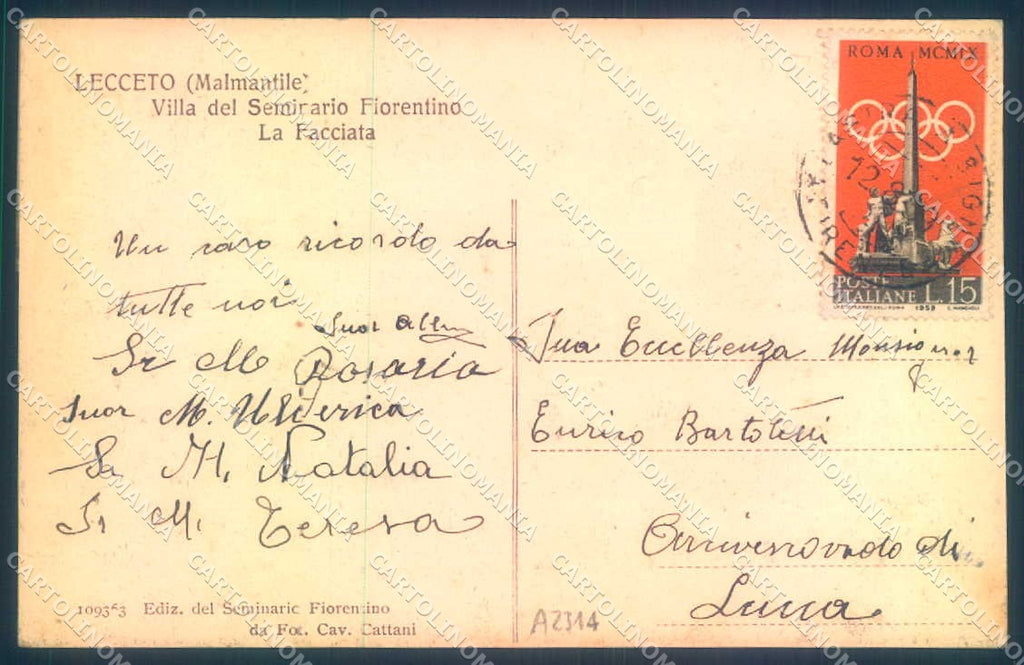 LECCETO (Malmantile)
Villa del Seminario Fiorentino
La Facciata
ROMA MCMLIX
POSTE
ITALIANE L. 15
1959
Un caro ricordo da
tutte noi
Suor
Sr M Rosaria
Suor M. Ulderica
Sr M. Natalia
Sr M. Teresa
Sua Eccellenza Monsignor
Enrico Bartoletti
Arcivescovado di
Lucca
109363 Ediz. del Seminario Fiorentino
da Fot. Cav. Cattani
A2314
CARTOLINOMANIA